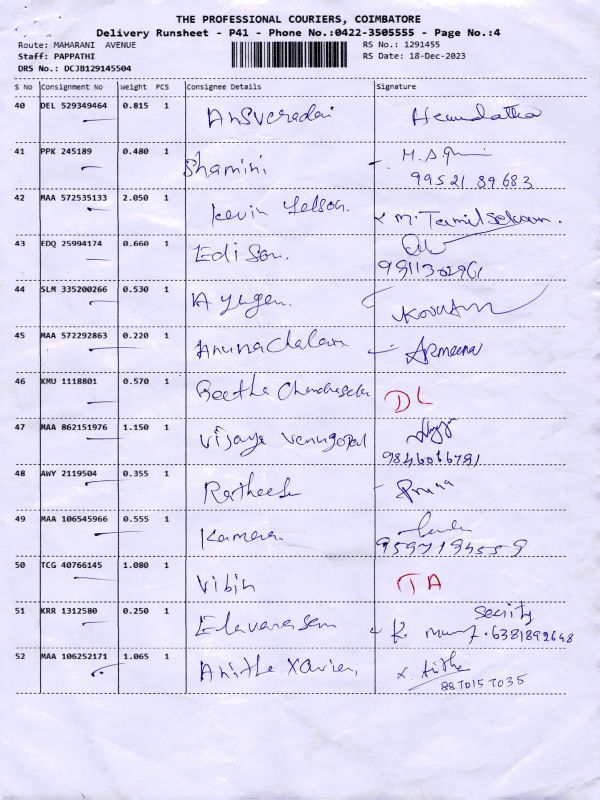 THE PROFESSIONAL COURIERS, COIMBATORE
Delivery Runsheet - P41 - Phone No.:0422-3505555 - Page No.:4
Route: MAHARANI AVENUE
RS No.: 1291455
Staff: PAPPATHI
RS Date: 18-Dec-2023
DRS No.: DCJB129145504
S No Consignment No Weight PCS Consignee Details Signature
40 DEL 529349464 0.815 1
41 PPK 245189 0.480 1 Shamini
99521 89683
42 MAA 572535133 2.050 1 Kevin Nelson. M. Tamilselvam.
43 EDQ 25994174 0.660 1 Edison.
44 SLM 335200266 0.530 1
45 MAA 572292863 0.220 1 Arunachalam Armeena
46 KMU 1118801 0.570 1 Geetha DL
47 MAA 862151976 1.150 1 Vijaya Venugopal
9846066791
48 AWY 2119504 0.355 1 Ratheesh
49 MAA 106545966 0.555 1
50 TCG 40766145 1.080 1 Vibin TA
51 KRR 1312580 0.250 1 6381892648
52 MAA 106252171 1.065 1 Anitha Xavier,
8870157035